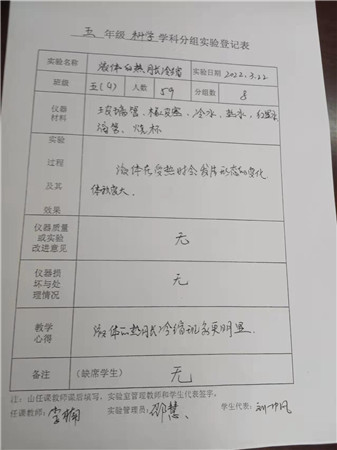 五 年级 科学 学科分组实验登记表
实验名称 液体的热胀冷缩 实验日期 2022.3.22
班级 五(4) 人数 59 分组数 8
仪器材料 玻璃管、橡皮塞、冷水、热水、红墨水
滴管、烧杯
实验过程及其效果 液体在受热时会发生形态的变化
体积变大。
仪器质量或实验改进意见 无
仪器损坏与处理情况 无
教学心得 液体的热胀冷缩现象更明显。
备注 (缺席学生) 无
注：由任课教师课后填写，实验室管理教师和学生代表签字。
任课教师： 实验管理员：邵慧 学生代表：